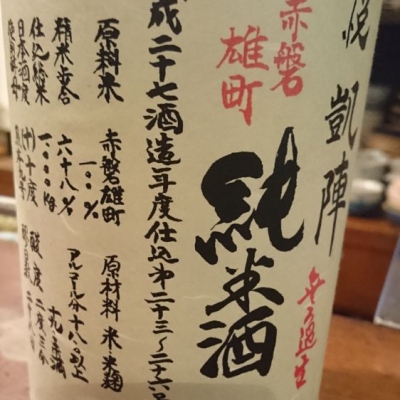 悦凱陣
赤磐
雄町
純米酒
無ろ過生
成二十七酒造年度仕込第二十三〜二十六号
原料米 赤磐雄町
一〇〇%
精米歩合 六十八%
仕込総米 一〇〇〇kg
日本酒度 (十)十度
酸度 二度
原材料 米・米麹
アルコール分 十八
以上